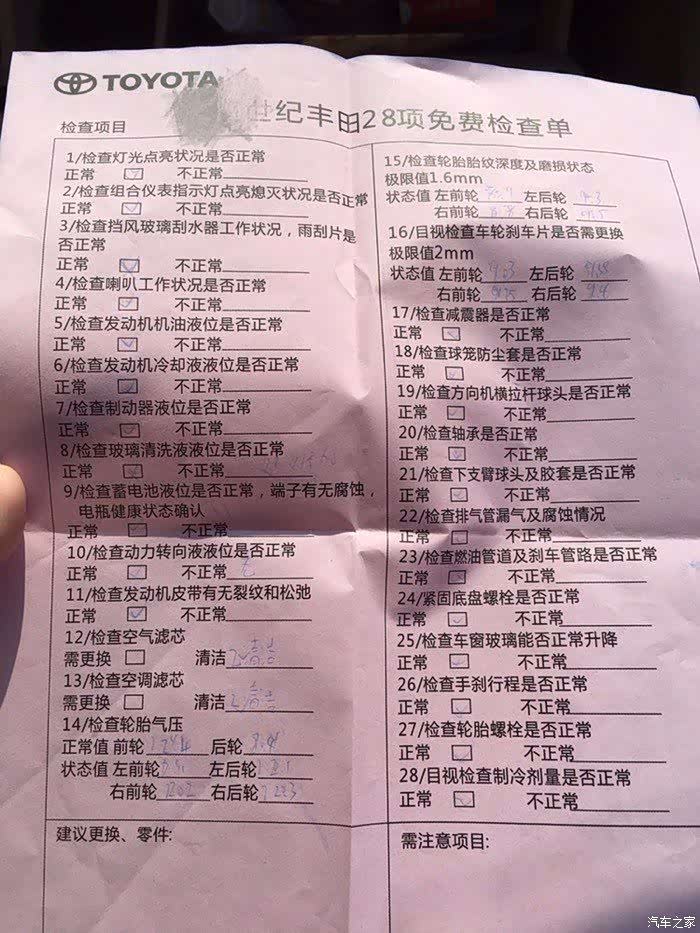 TOYOTA
世纪丰田28项免费检查单
检查项目
1/检查灯光点亮状况是否正常
正常 不正常
2/检查组合仪表指示灯点亮熄灭状况是否正常
正常 不正常
3/检查挡风玻璃刮水器工作状况，雨刮片是
否正常
正常 不正常
4/检查喇叭工作状况是否正常
正常 不正常
5/检查发动机机油液位是否正常
正常 不正常
6/检查发动机冷却液液位是否正常
正常 不正常
7/检查制动器液位是否正常
正常 不正常
8/检查玻璃清洗液液位是否正常
正常 不正常
9/检查蓄电池液位是否正常，端子有无腐蚀，
电瓶健康状态确认
正常 不正常
10/检查动力转向液液位是否正常
正常 不正常 无
11/检查发动机皮带有无裂纹和松弛
正常 不正常
12/检查空气滤芯
需更换 清洁 已清洁
13/检查空调滤芯
需更换 清洁 已清洁
14/检查轮胎气压
正常值 前轮 后轮
状态值 左前轮 左后轮
右前轮 右后轮
建议更换、零件:
15/检查轮胎胎纹深度及磨损状态
极限值1.6mm
状态值 左前轮 左后轮
右前轮 右后轮
16/目视检查车轮刹车片是否需更换
极限值2mm
状态值 左前轮 9.03 左后轮
右前轮 右后轮
17/检查减震器是否正常
正常 不正常
18/检查球笼防尘套是否正常
正常 不正常
19/检查方向机横拉杆球头是否正常
正常 不正常
20/检查轴承是否正常
正常 不正常
21/检查下支臂球头及胶套是否正常
正常 不正常
22/检查排气管漏气及腐蚀情况
正常 不正常
23/检查燃油管道及刹车管路是否正常
正常 不正常
24/紧固底盘螺栓是否正常
正常 不正常
25/检查车窗玻璃能否正常升降
正常 不正常
26/检查手刹行程是否正常
正常 不正常
27/检查轮胎螺栓是否正常
正常 不正常
28/目视检查制冷剂量是否正常
正常 不正常
需注意项目:
汽车之家